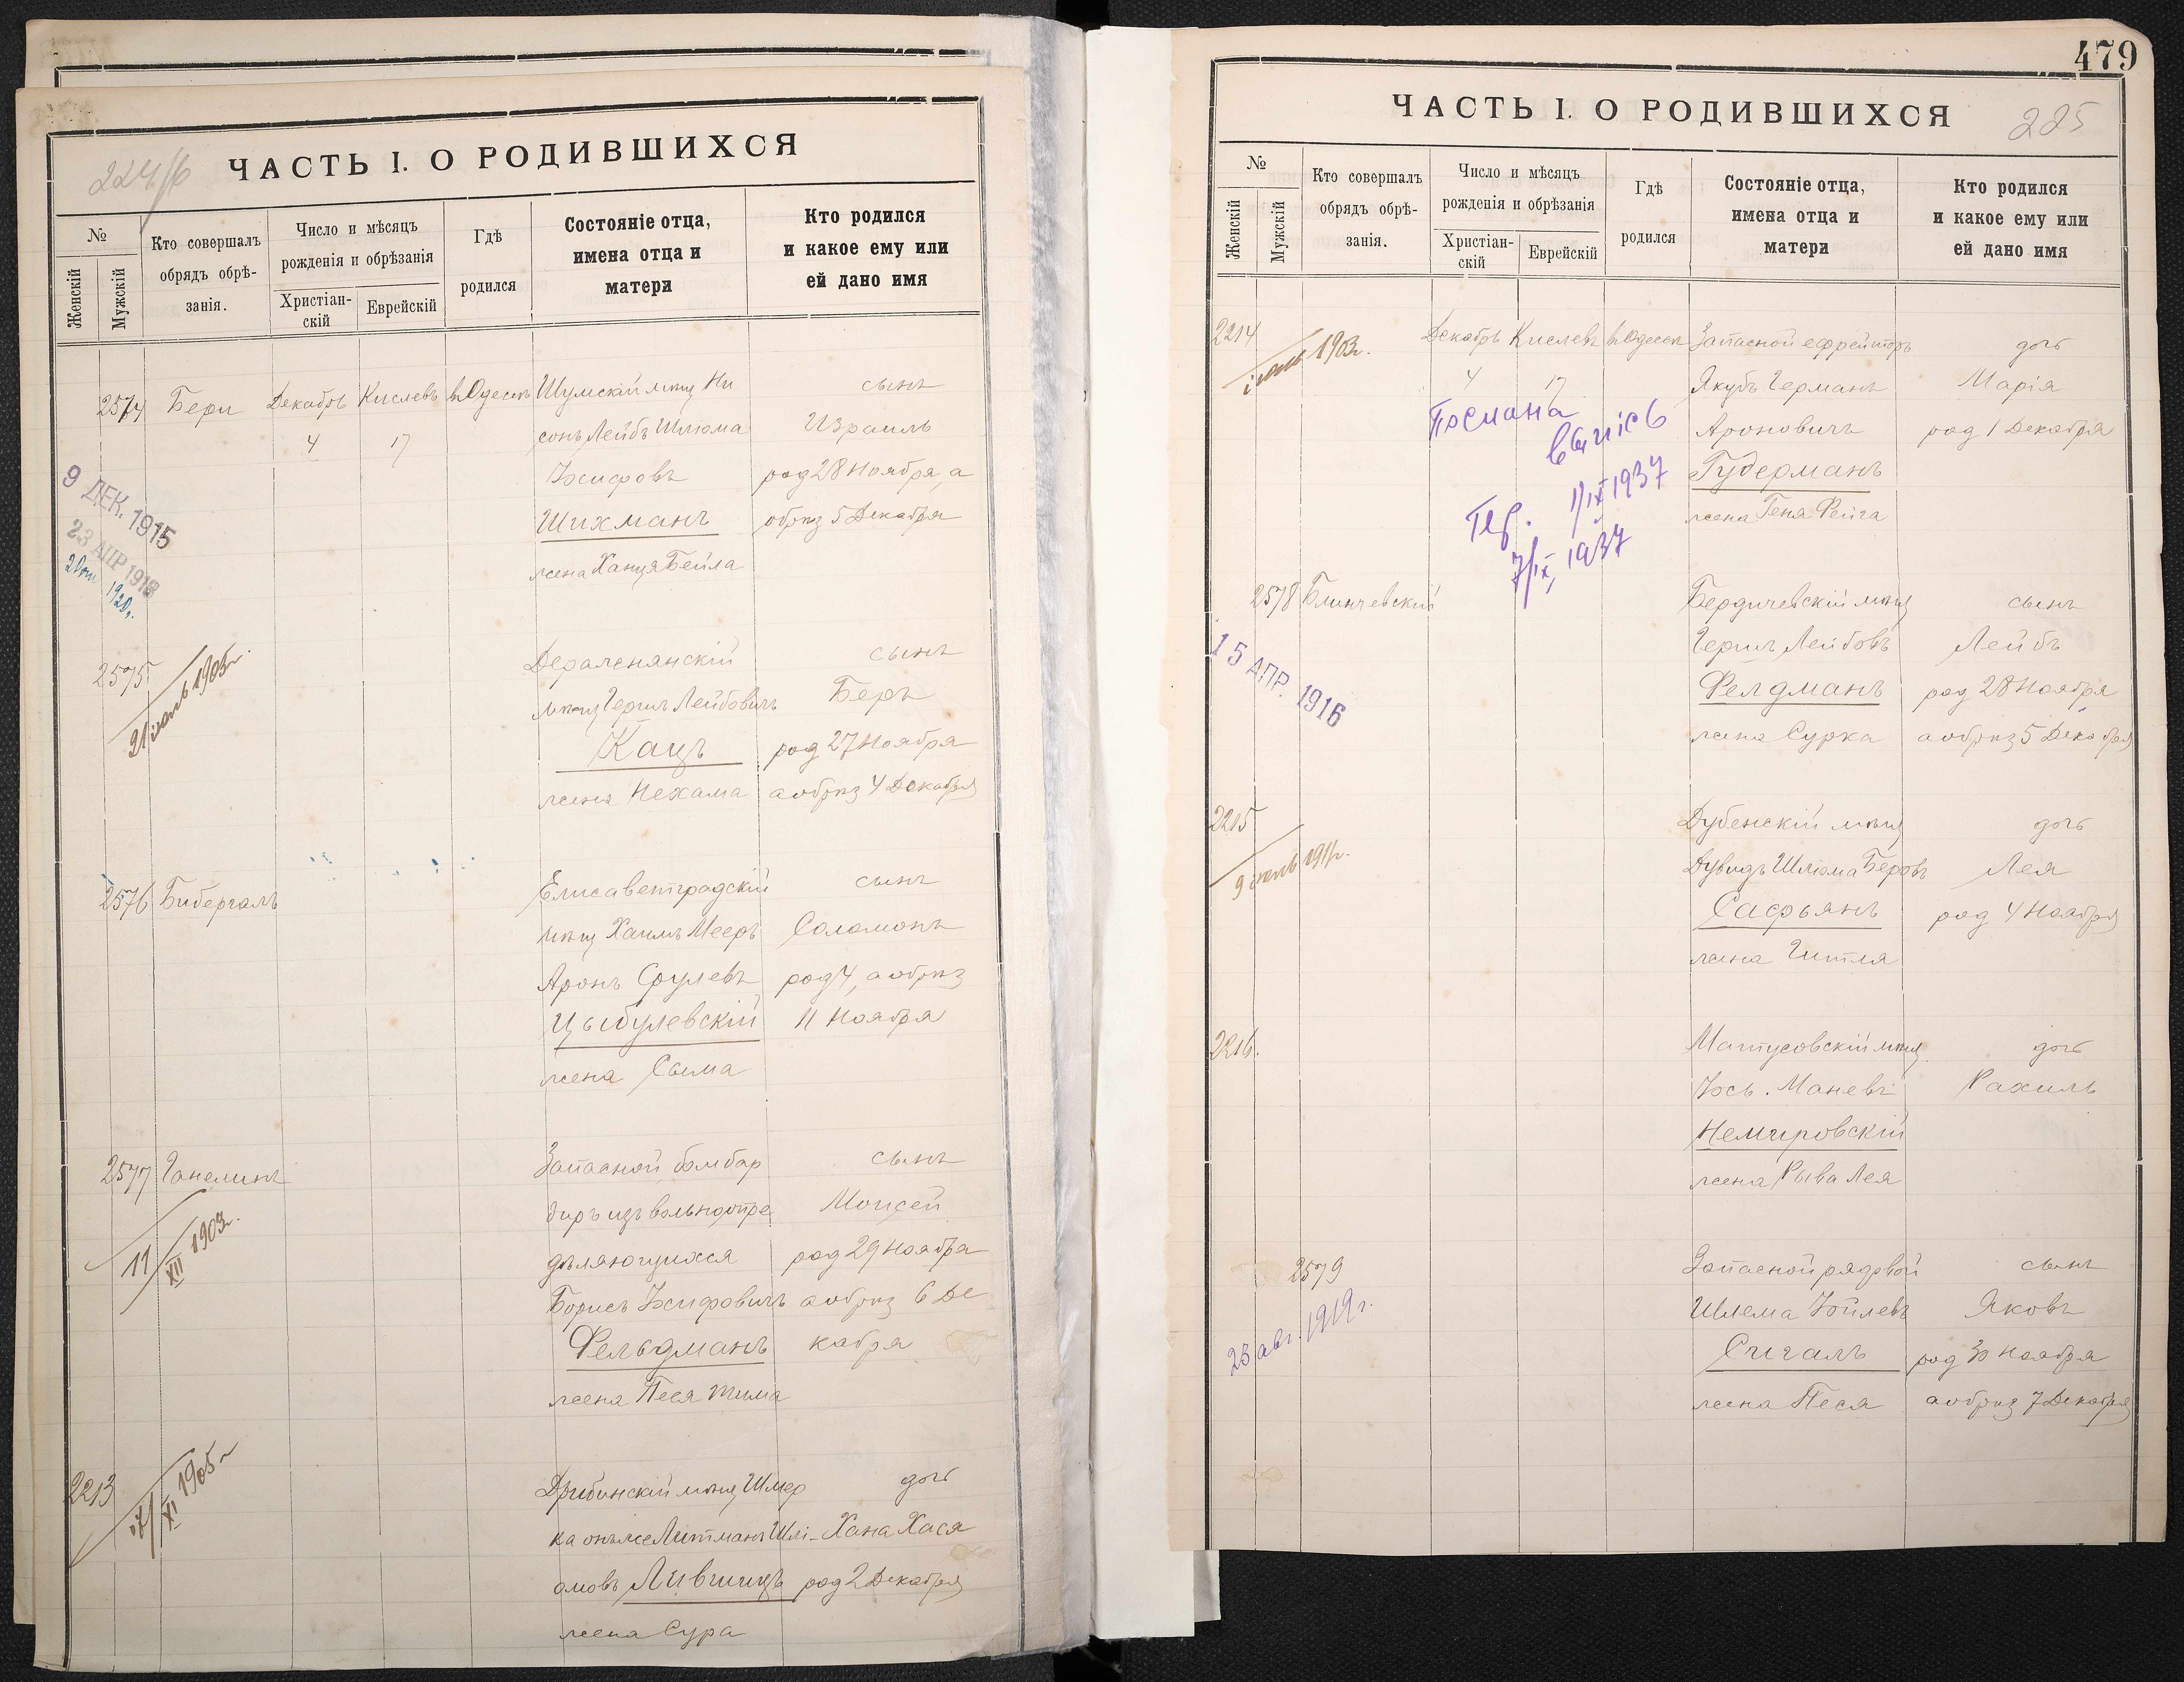 224/6
ЧАСТЬ I. О РОДИВШИХСЯ
№
Женскій
Мужскій
Кто совершалъ
обрядъ обрѣ-
занія.
Число и мѣсяцъ
рожденія и обрѣзанія
Христіан-
скій
Еврейскій
Гдѣ
родился
Состояніе отца,
имена отца и
матери
Кто родился
и какое ему или
ей дано имя
2574 Бери Декабрь Кислевъ въ Одессѣ Шумскій мѣщ Ни сынъ
4 17 сонъ Лейбъ Шлюма Израиль
Іосифовъ род 28 Ноября, а
Шихманъ обрѣз 5 Декабря
жена Ханця Бейла
9 ДЕК. 1915
23 АПР 1918
1920г.
2575 Деражнянскій сынъ
21 іюль 1903г.
мѣщ Гершъ Лейбовичъ Беръ
Кацъ род 27 Ноября
жена Нехама а обрѣз 4 Декабря
2576 Бибергалъ Елисаветградскій сынъ
мѣщ Хаимъ Мееръ Соломонъ
Аронъ Срулевъ род 4, а обрѣз
Цыбулевскій 11 Ноября
жена Сыма
2577 Ганелинъ Запасной бомбар сынъ
диръ изъ вольноопре Моисей
11/XII 1903г.
дѣляющихся род 29 Ноября
Борисъ Іосифовичъ а обрѣз 6 Де
Фельдманъ кабря
жена Песя
2213 Дрибинскій мѣщ Шмер дочь
17/XI 1905г
ка онъ же Литманъ Шлі- Хана Хася
омовъ Лившицъ род 2 Декабря
жена Сура
479
225
ЧАСТЬ I. О РОДИВШИХСЯ
№
Женскій
Мужскій
Кто совершалъ
обрядъ обрѣ-
занія.
Число и мѣсяцъ
рожденія и обрѣзанія
Христіан-
скій
Еврейскій
Гдѣ
родился
Состояніе отца,
имена отца и
матери
Кто родился
и какое ему или
ей дано имя
2214 Декабрь Кислевъ въ Одессѣ Запасной ефрейторъ дочь
1903г.
4 17 Якубъ Германъ Марія
Ароновичъ род 1 Декабря
Гудерманъ
жена Геня Фейга
1/IX 1937
7/IX 1937
2578 Блинчевскій Бердичевскій мѣщ сынъ
Гершъ Лейбовъ Лейбъ
15 АПР. 1916
Фелдманъ род 28 Ноября
жена Сурка а обрѣз 5 Декабря
2215 Дубенскій мѣщ дочь
1911г.
Дувидъ Шлюма Беровъ Лея
Сафьянъ род 4 Ноября
жена Гитля
2216. Матусовскій мѣщ дочь
Іось. Маневъ Рахиль
Немировскій
жена Рыва Лея
2579 Запасной рядовой сынъ
23 авг. 1919г.
Шлема Іойлевъ Яковъ
Сигалъ род 30 Ноября
жена Песя а обрѣз 7 Декабря